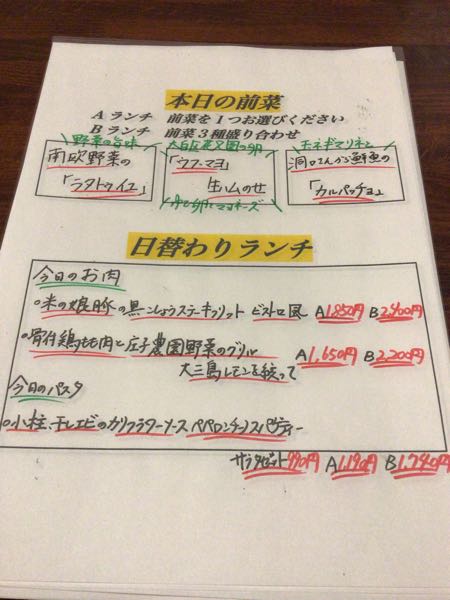 本日の前菜
Aランチ 前菜を1つお選びください
Bランチ 前菜3種盛り合わせ
野菜の旨味
南欧野菜の
「ラタトゥイユ」
「ウフ・マヨ」
生ハムのせ
ゆで卵とマヨネーズ
玉ネギマリネと
鮮魚の
「カルパッチョ」
日替わりランチ
今日のお肉
○米の娘豚の黒こしょうステーキフリット ビストロ風 A1,850円 B2,400円
○骨付鶏もも肉と庄子農園野菜のグリル A1,650円 B2,200円
大三島レモンを絞って
今日のパスタ
○小柱、干しエビのカリフラワーソース ペペロンチーノスパゲティー
サラダセット990円 A1,190円 B1,740円